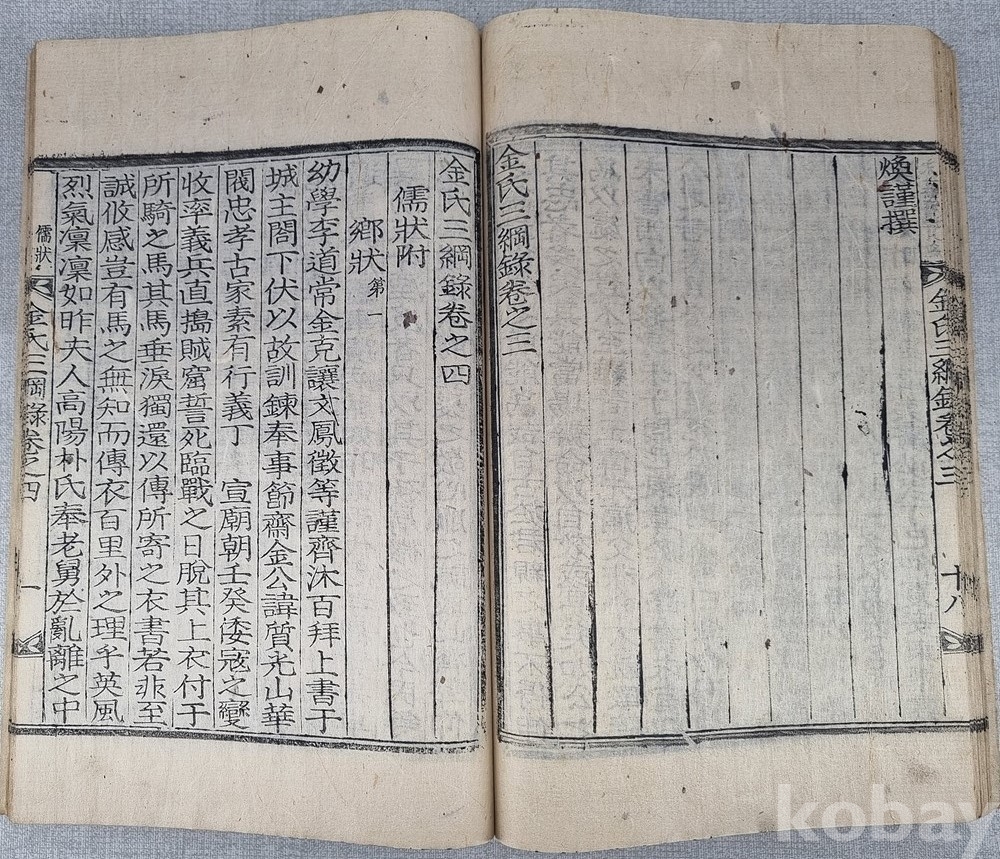 煥謹撰
金氏三綱錄卷之三
十八
金氏三綱錄卷之三
金氏三綱錄卷之四
儒狀附
鄉狀 第一
幼學李道常金克讓文鳳徵等謹齊沐百拜上書于
城主閤下伏以故訓鍊奉事節齋金公諱質光山華
閥忠孝古家素有行義丁 宣廟朝壬癸倭寇之變
收率義兵直搗賊窟誓死臨戰之日脫其上衣付于
所騎之馬其馬垂淚獨還以傳所寄之衣書若非至
誠攸感豈有馬之無知而傳衣百里外之理乎英風
烈氣凜凜如昨夫人高陽朴氏奉老舅於亂離之中
儒狀
金氏三綱錄卷之四
一
kobay